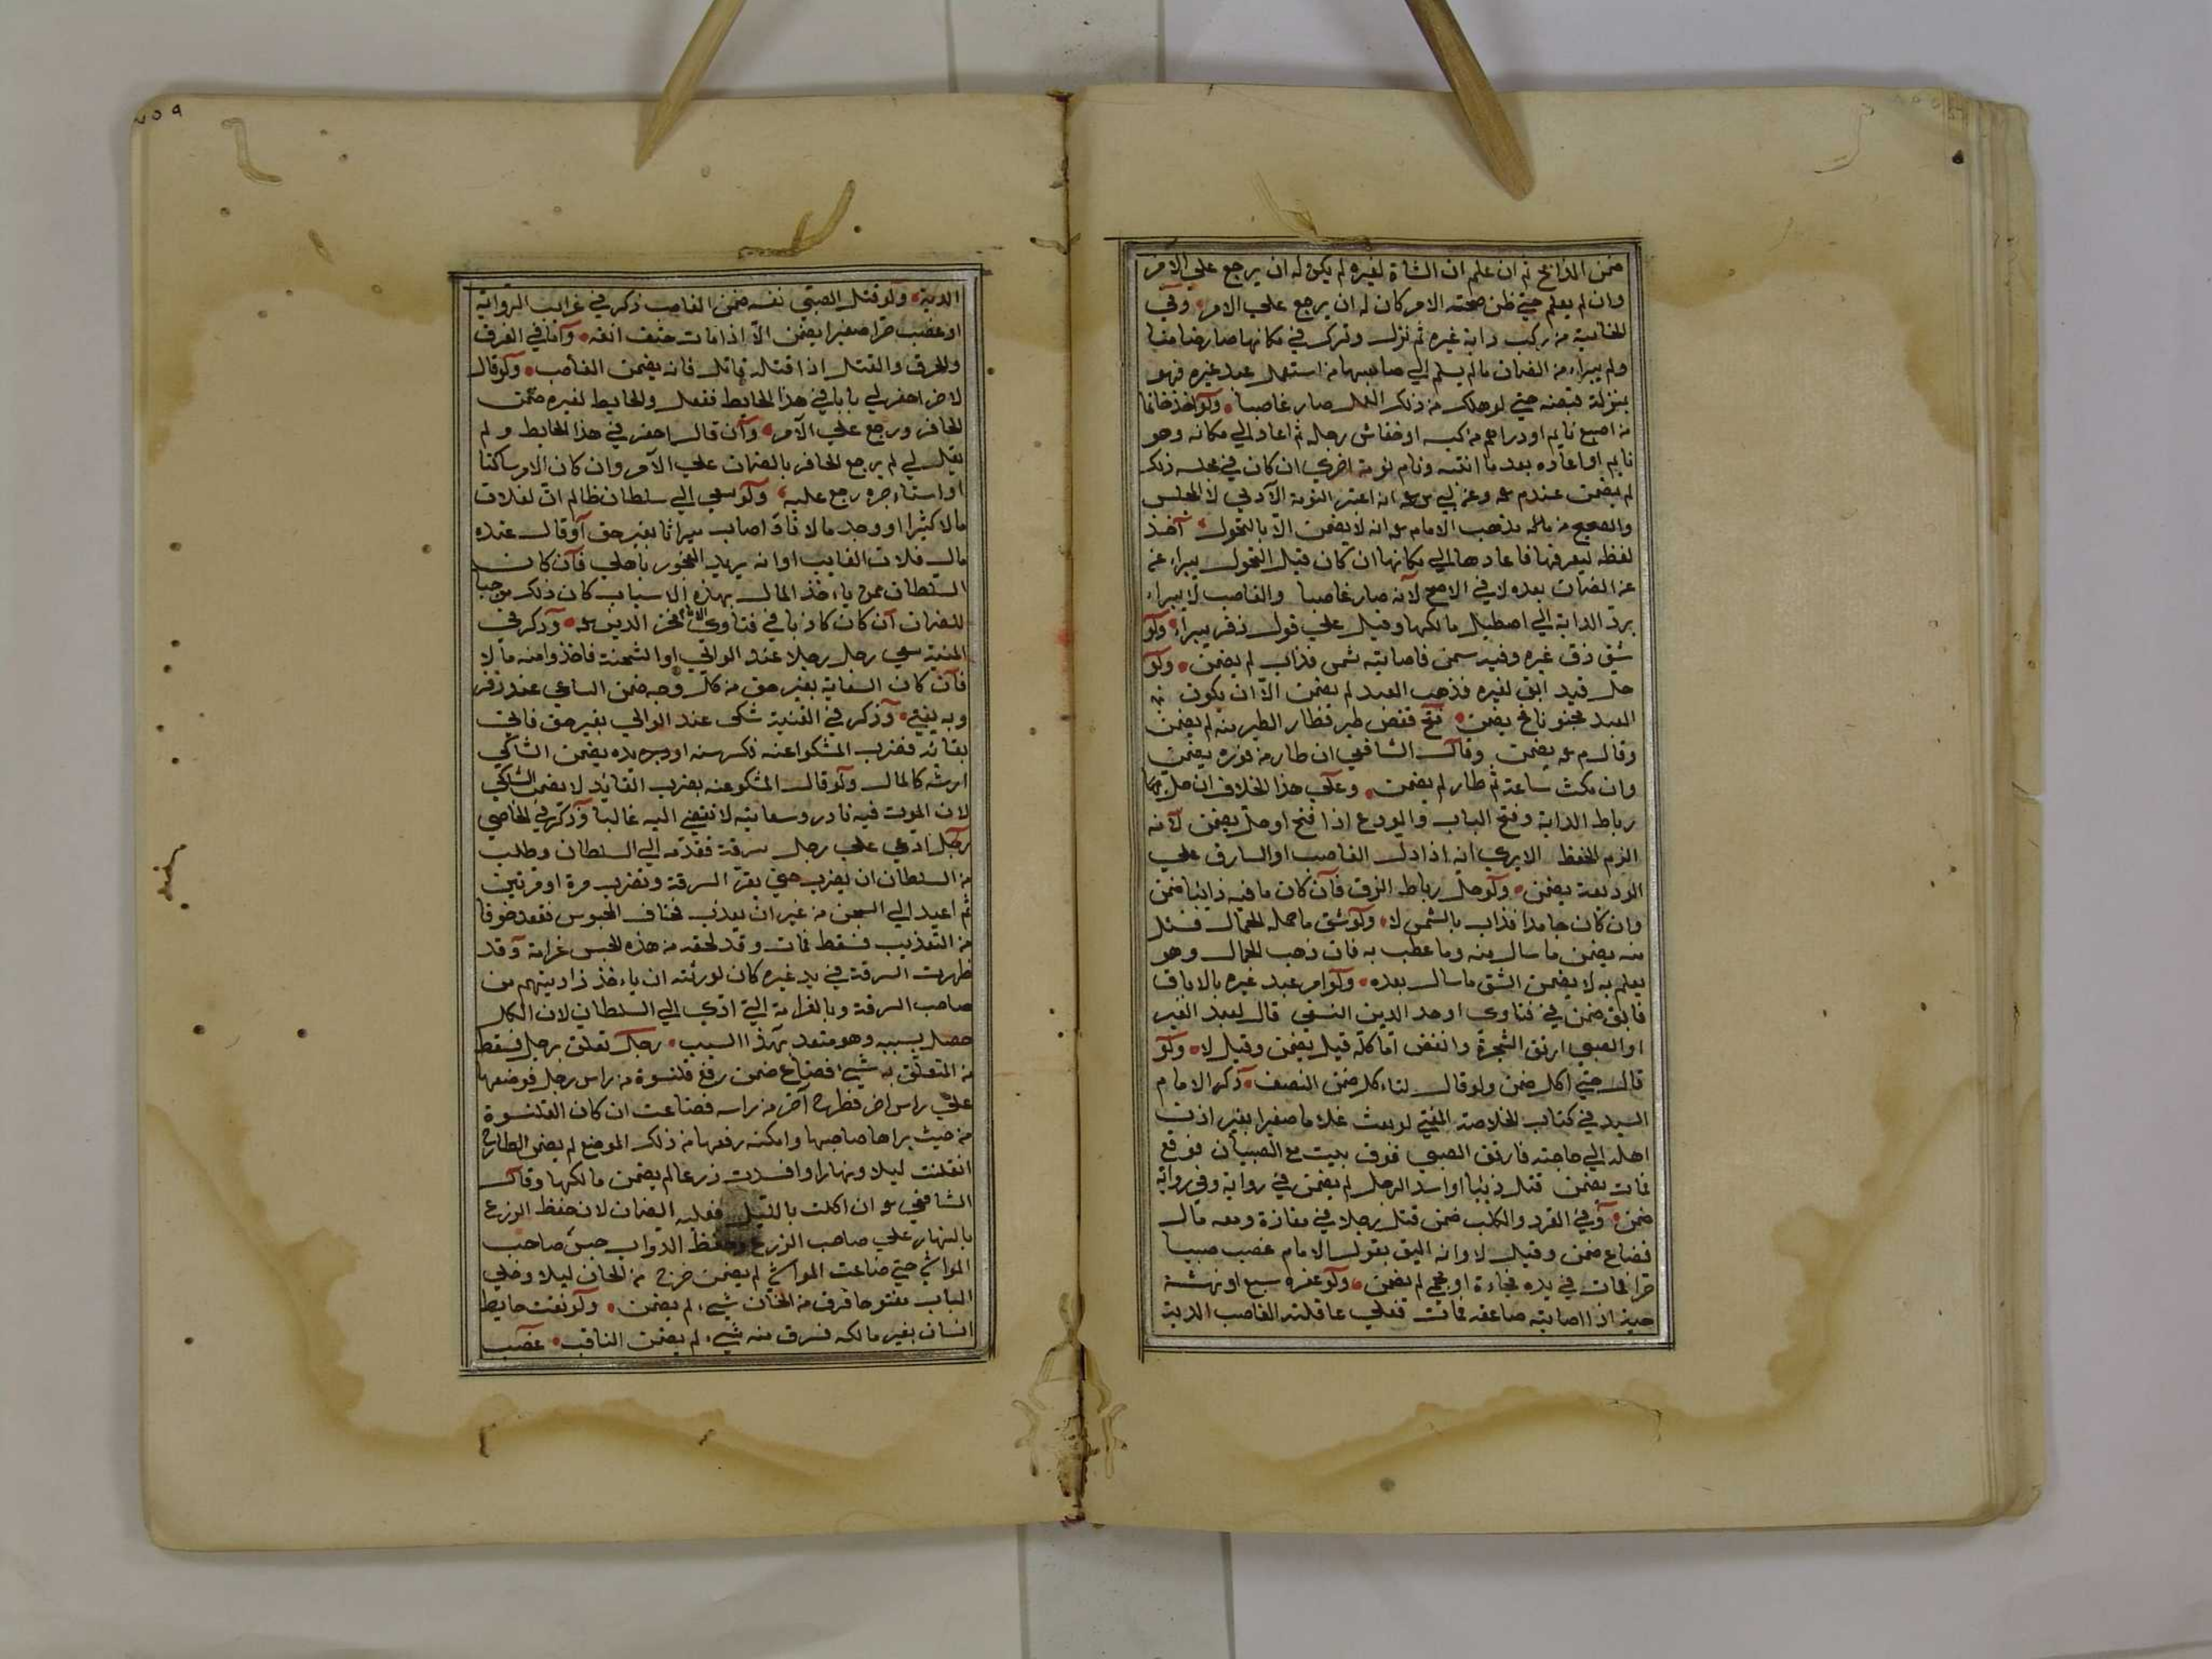 ضمن الذابح ثم ان علم ان الشاة لغيره لم يكن له ان يرجع علي الامر
وان لم يعلم حتي ظن صحته الامر كان له ان يرجع علي الامر وفي
الخانية من ركب دابة غيره ثم نزل وترك في مكانها صار ضامنا
ولم يبراء من الضمان مالم يسلم الي صاحبها من استعمل عبد غيره فهو
بمنزلة قبضه حتي لو هلك من ذلك العمل صار غاصبا ولو اخذ خاتما
من اصبع نايم او دراهم من كيسه او خفا من رجله ثم اعاد الي مكانه وهو
نايم او اعاده بعد ما انتبه ونام نومة اخري ان كان في مجلسه ذلك
لم يضمن عندهم وعن ابي انه اعتبر النومة الاولي لا المجلس
والصحيح من مذهب الامام انه لا يضمن الا بالتحول اخذ
لقطة ليعرفها فاعادها الي مكانها ان كان قبل التحول يبراء عن
عن الضمان بعده لا في الاصح لانه صار غاصبا والغاصب لا يبراء
برد الدابة الي اصطبل مالكها وقيل علي قول زفر يبراء ولو
شق زق غيره وفيه سمن فاصابته شمس فذاب لم يضمن ولو
حل قيد ابق لغيره فذهب العبد لم يضمن الا ان يكون
العبد مجنونا يضمن فتح قفص طير فطار الطير منه لم يضمن
وقال م يضمن وقال الشافعي ان طار من فوره يضمن
وان مكث ساعة ثم طار لم يضمن وعلي هذا الخلاف ان حل
رباط الدابة وفتح الباب والمودع اذا فتح او حل يضمن لانه
الزم الحفظ الا يري انه اذا دل الغاصب او السارق علي
الوديعة يضمن ولو حل رباط الزق فان كان ما فيه ذائبا ضمن
وان كان جامدا فذاب بالشمس لا ولو شق ما حمله الحمال فسئل
منه يضمن ما سال منه وما عطب به فان ذهب الحمال وهو
يعلم به لا يضمن الشق ما سال بعده ولو امر عبد غيره بالاباق
فابق ضمن في فتاوي اوحد الدين النسفي قال لعبد الغير
او الصبي ارتق الشجرة وانفض انا كله قيل يضمن وقيل لا ولو
قال حتي اكل ضمن ولو قال لتاءكل ضمن النصف ذكر الامام
السيد في كتاب الخلاصة المفتي لو بعث غلاما صغيرا بغير اذن
اهله الي حاجته فارتق الصبي فوق بيت مع الصبيان فوقع
فمات يضمن قتل ذيبا او اسد الرجل لم يضمن في رواية وفي رواية
ضمن وفي القرد والكلب ضمن قتل رجلا في مفازة ومعه مال
فضاع ضمن وقيل لا وانه اليق بقول الامام غصب صبيا
حرا فمات في يده فجاءة او بحمي لم يضمن ولو عقره سبع او نهشته
حية او اصابته صاعقة فمات فعلي عاقلة الغاصب الدية
٢٥٩
الدية ولو قتل الصبي نفسه ضمن الغاصب ذكر في غرائب الرواية
او غصب حرا صغيرا يضمن الا اذا مات حتف انفه واما في الغرق
والحرق والقتل اذا قتله قاتل فانه يضمن الغاصب ولو قال
لاخر احفر لي بابا في هذا الحايط ففعل والحايط لغيره ضمن
الحافر ورجع علي الآمر وان قال احفر في هذا الحايط ولم
يقل لي لم يرجع الحافر بالضمان علي الآمر وان كان الامر ساكنا
او استاءجره رجع عليه ولو سعي الي سلطان ظالم ان لفلان
مالا كثيرا او وجد مالا فاد اصاب ميراثا بغير حق او قال عنده
مال فلان الغايب او انه يريد الفجور باهلي فان كان
السلطان ممن ياءخذ المال بهذه الاسباب كان ذلك موجبا
للضمان ان كان كاذبا في فتاوي فخر الدين وذكر في
المنية سعي رجل رجلا عند الوالي او الشحنة فاخذوا منه مالا
فان كان السعاية بغير حق من كل وجه ضمن الساعي عند زفر
وبه يفتي وذكر في القنية شكي عند الوالي بغير حق فاتي
بقائد فضرب المشكوا عنه فكسر سنه او يده يضمن الشاكي
ارشه كالمال ولو قال المشكو عنه بضرب القايد لا يضمن الشاكي
لان الموت فيه نادر وسعايته لا تفضي اليه غالبا وذكر في القاضي
رجل ادعي علي رجل سرقة فقدمه الي السلطان وطلب
من السلطان ان يضرب حتي يقر السرقة وتضرب مرة او مرتين
ثم اعيد الي السجن من غير ان يعذب فخاف المحبوس فقعد خوفا
من التعذيب فسقط فمات وقد لحقه من هذه الحبس غرامة وقد
ظهرت السرقة في يد غيره كان لورثته ان ياءخذ ذا ديتهم من
صاحب السرقة وبالغرامة التي ادي الي السلطان لان الكل
حصل بسببه وهو متعد بهذا السبب رجل تعلق برجل فسقط
من المتعلق به شيء فضاع ضمن رفع قلنسوة من راس رجل فوضعها
علي راس اخر فطرح آخر من راسه فضاعت ان كان القلنسوة
من حيث يراها صاحبها وامكنه رفعها من ذلك الموضع لم يضمن الطارح
انفلتت ليلا ونهارا وافسدت زرعا لم يضمن مالكها وقال
الشافعي ان اكلت بالليل فعليه الضمان لان حفظ الزرع
بالنهار علي صاحب الزرع وحفظ الدواب حبس صاحب
المواشي حتي ضاعت المواشي لم يضمن خرج من الخان ليلا وخلي
الباب مفتوحا فسرق من الخان شيء لم يضمن ولو نقب حايط
انسان بغير مالكه فسرق منه شيء لم يضمن الناقب غصب